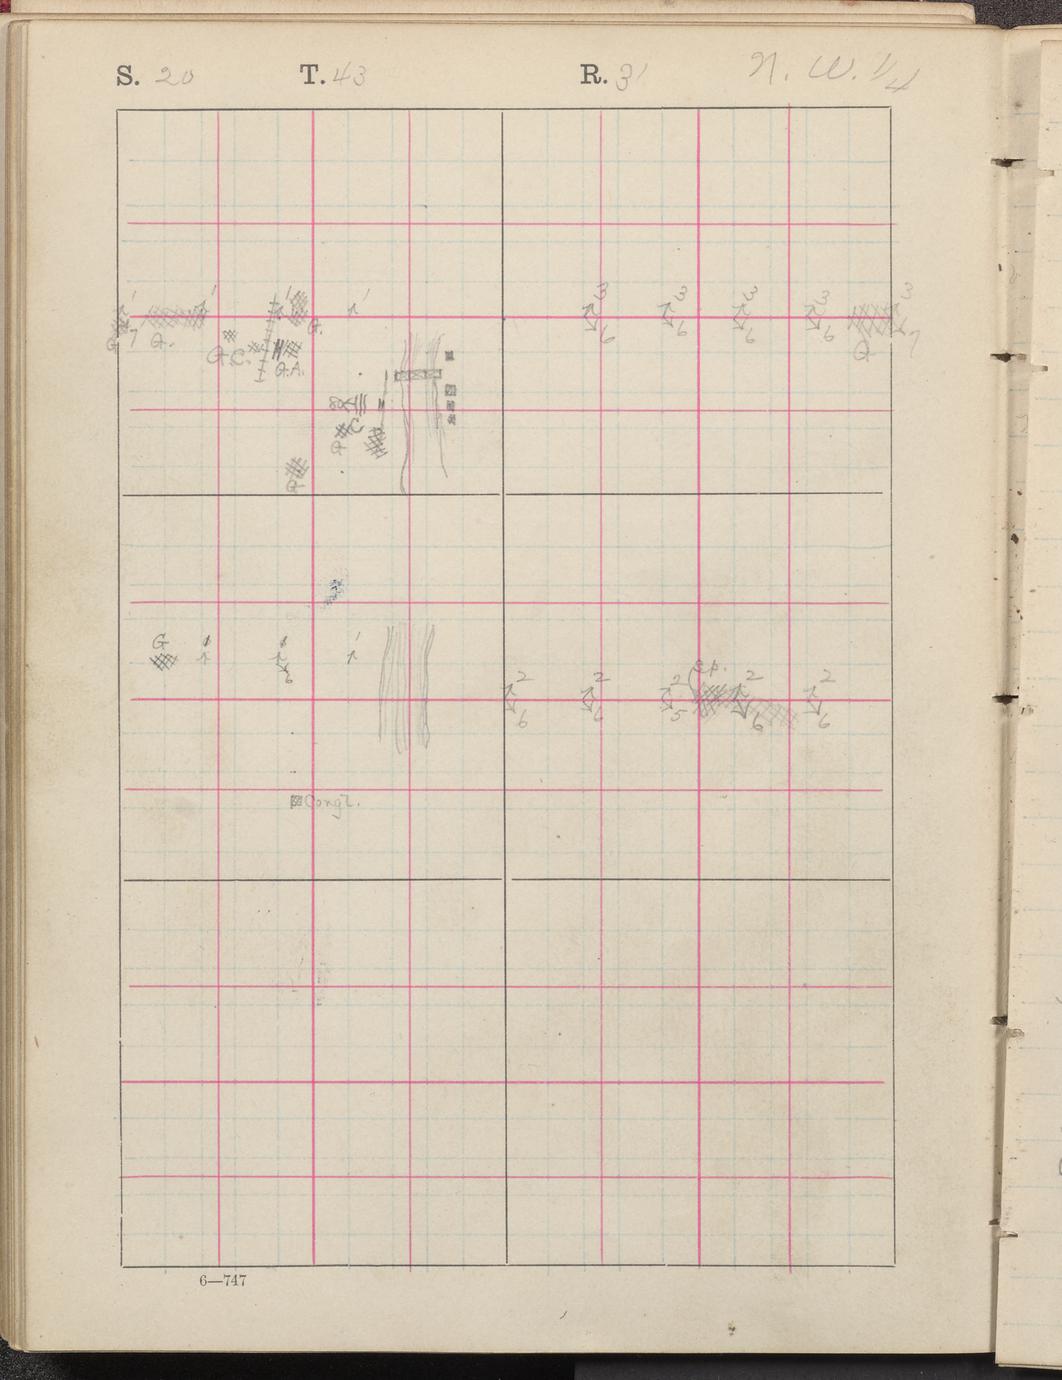 S. 20 T. 43 R. 31 N. W. 1/4
1 1 1 1 3 3 3 3 3
7 Q. Q. 6 6 6 6 Q 7
Q. C. Q.A.
C
Q
Q
G 1
6
Sp.
2 2 2 2 2
6 6 5 6 6
Congl.
6—747